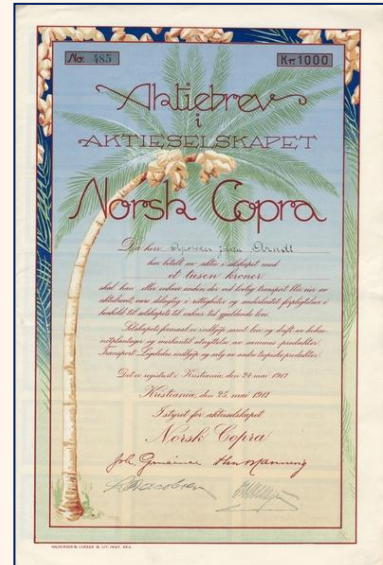 No. 485
Kr. 1000
Aktiebrev
i
AKTIESELSKAPET
Norsk Copra
Da herr Arndt
har betalt en aktie i selskapet med
et tusen kroner
skal han eller enhver anden, der ved lovlig transport blir eier av
aktiebrevet, være delagtig i rettigheter og underkastet forpligtelser i
henhold til selskapets til enhver tid gjældende love.
Selskapets formaal er indkjøp samt leie og drift av kokos-
nøtplantager og merkantil utnyttelse av sammes produkter.
Transport. Ligeledes indkjøp og salg av andre tropiske produkter.
Det er registrert i Kristiania, den 24 mai 1917
Kristiania, den 25. mai 1917
I styret for aktieselskapet
Norsk Copra